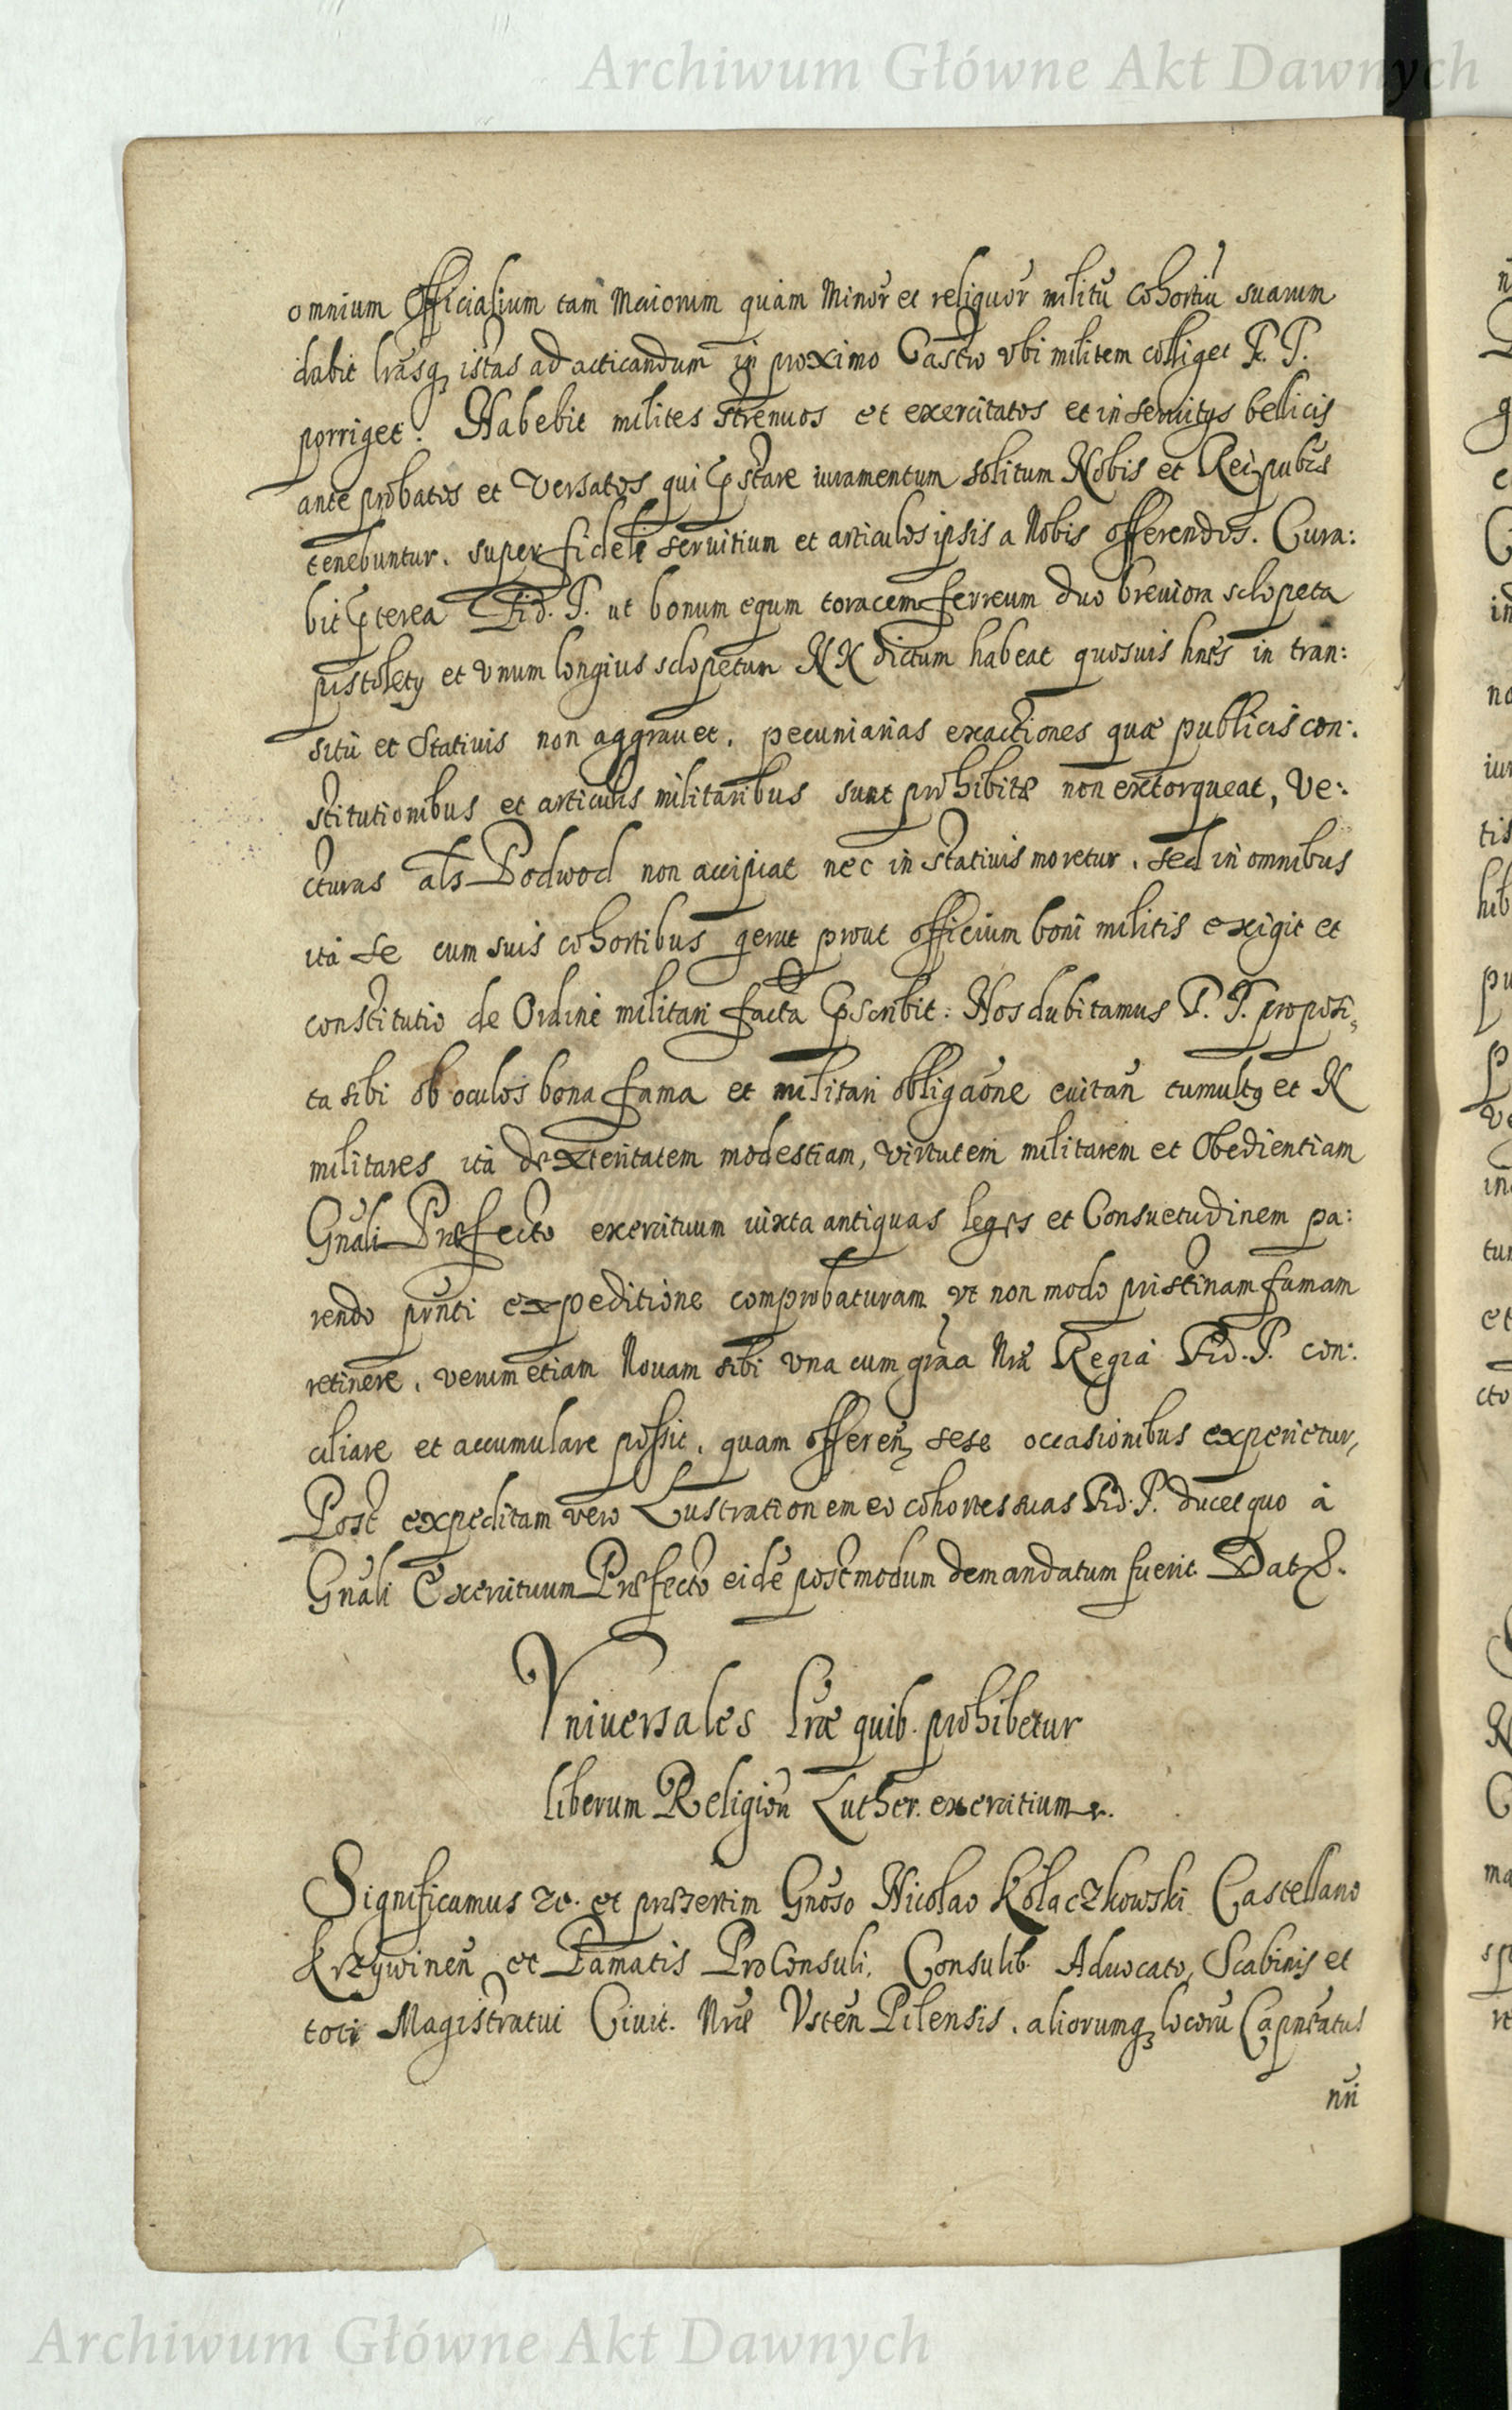 Archiwum Główne Akt Dawnych
omnium Officialium tam Maiorum quàm Minor̃ et reliquor̃ militũ cohortiũ suarum
dabit lr̃asq; istas ad acticandum in proximo Castro vbi militem colliget F. T.
porriget. Habebit milites strenuos et exercitatos et in seruitys bellicis
ante probatos et versatos qui p̃stare iuramentum solitum Nobis et Reipub͠s
tenebuntur. super fidele seruitium et articulos ipsis a Nobis offerendos. Cura:
bit p̃terea Fid. T. ut bonum equm toracem ferreum duo breuiora sclopeta
pistolety et vnum longius sclopetum NN dictum habeat quosuis hñes in tran:
situ et Statiuis non aggrauet. pecuniarias exactiones quæ publicis con:
stitutionibus et articulis militaribus sunt prohibitæ non extorqueat, ve:
cturas al͠s Podwod non accipiat nec in statiuis moretur. sed in omnibus
ità se cum suis cohortibus gerat prout officium boni militis exigit et
constitutio de Ordine militari facta p̃scribit: Nos dubitamus F. T. proposi,
ta sibi ob oculos bona fama et militari obligaõne euitañ tumultq et N
militares ità dexteritatem modestiam, virtutem militarem et Obedientiam
Gñali Præfecto exercituum iuxta antiquas leges et Consuetudinem pa:
rendo prñti expeditione comprobaturam vt non modo pristinam famam
retinere. verum etiam Nouam sibi vna cum gr̃aa Nr̃a Regia Fid. T. con:
ciliare et accumulare possit. quam offereñ sese occasionibus experietur,
Post expeditam vero Lustrationem eo cohortes suas Fid. T. ducet quo à
Gñali Exercituum Præfecto eidẽ postmodum demandatum fuerit. Dat &.
Vniuersales lr̃æ quib. prohibetur
liberum Religioñ Luther. exercitium
Significamus &c. et præsertim Gñoso Nicolao Kołaczkowski Castellano
Krzywineñ et Famatis ProConsuli, Consulib. Aduocato, Scabinis et
toti Magistratui Ciuit. Nr̃æ Vsteñ Pilensis. aliorumq; locorũ Capñeatus
nr̃i
Archiwum Główne Akt Dawnych